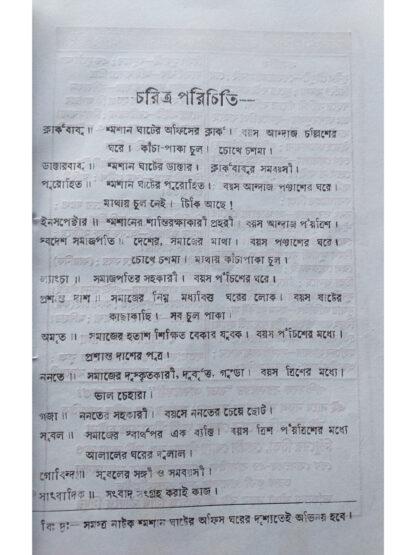 চরিত্র পরিচিতি—
ক্লার্কবাবু ॥ শ্মশান ঘাটের অফিসের ক্লার্ক। বয়স আন্দাজ চল্লিশের
ঘরে। কাঁচা-পাকা চুল। চোখে চশমা।
ডাক্তারবাবু ॥ শ্মশান ঘাটের ডাক্তার। ক্লার্কবাবুর সমবয়সী।
পুরোহিত ॥ শ্মশান ঘাটের পুরোহিত। বয়স আন্দাজ পঞ্চাশের ঘরে।
মাথায় চুল নেই। টিকি আছে!
ইনসপেক্টার ॥ শ্মশানের শান্তিরক্ষাকারী প্রহরী। বয়স আন্দাজ পঁয়ত্রিশ।
স্বদেশ সমাজপতি ॥ দেশের, সমাজের মাথা। বয়স পঞ্চাশের ঘরে।
চোখে চশমা। মাথায় কাঁচাপাকা চুল।
ল্যাংচা ॥ সমাজপতির সহকারী। বয়স পঁচিশের ঘরে।
প্রশান্ত দাশ ॥ সমাজের নিম্ন মধ্যবিত্ত ঘরের লোক। বয়স ষাটের
কাছাকাছি। সব চুল পাকা।
অমৃত ॥ সমাজের হতাশ শিক্ষিত বেকার যুবক। বয়স পঁচিশের মধ্যে।
প্রশান্ত দাশের পুত্র।
ননতে ॥ সমাজের দুস্কৃতকারী, দুর্বৃত্ত, গুন্ডা। বয়স ত্রিশের মধ্যে।
ভাল চেহারা।
গজা ॥ ননতের সহকারী। বয়সে ননতের চেয়ে ছোট।
সুবল ॥ সমাজের স্বার্থপর এক ব্যক্তি। বয়স ত্রিশ পঁয়ত্রিশের মধ্যে
আলালের ঘরের দুলাল।
গোবিন্দ ॥ সুবলের সঙ্গী ও সমবয়সী।
সাংবাদিক ॥ সংবাদ সংগ্রহ করাই কাজ।
বিঃ দ্রঃ— সমস্ত নাটক শ্মশান ঘাটের অফিস ঘরের দৃশ্যতেই অভিনয় হবে।